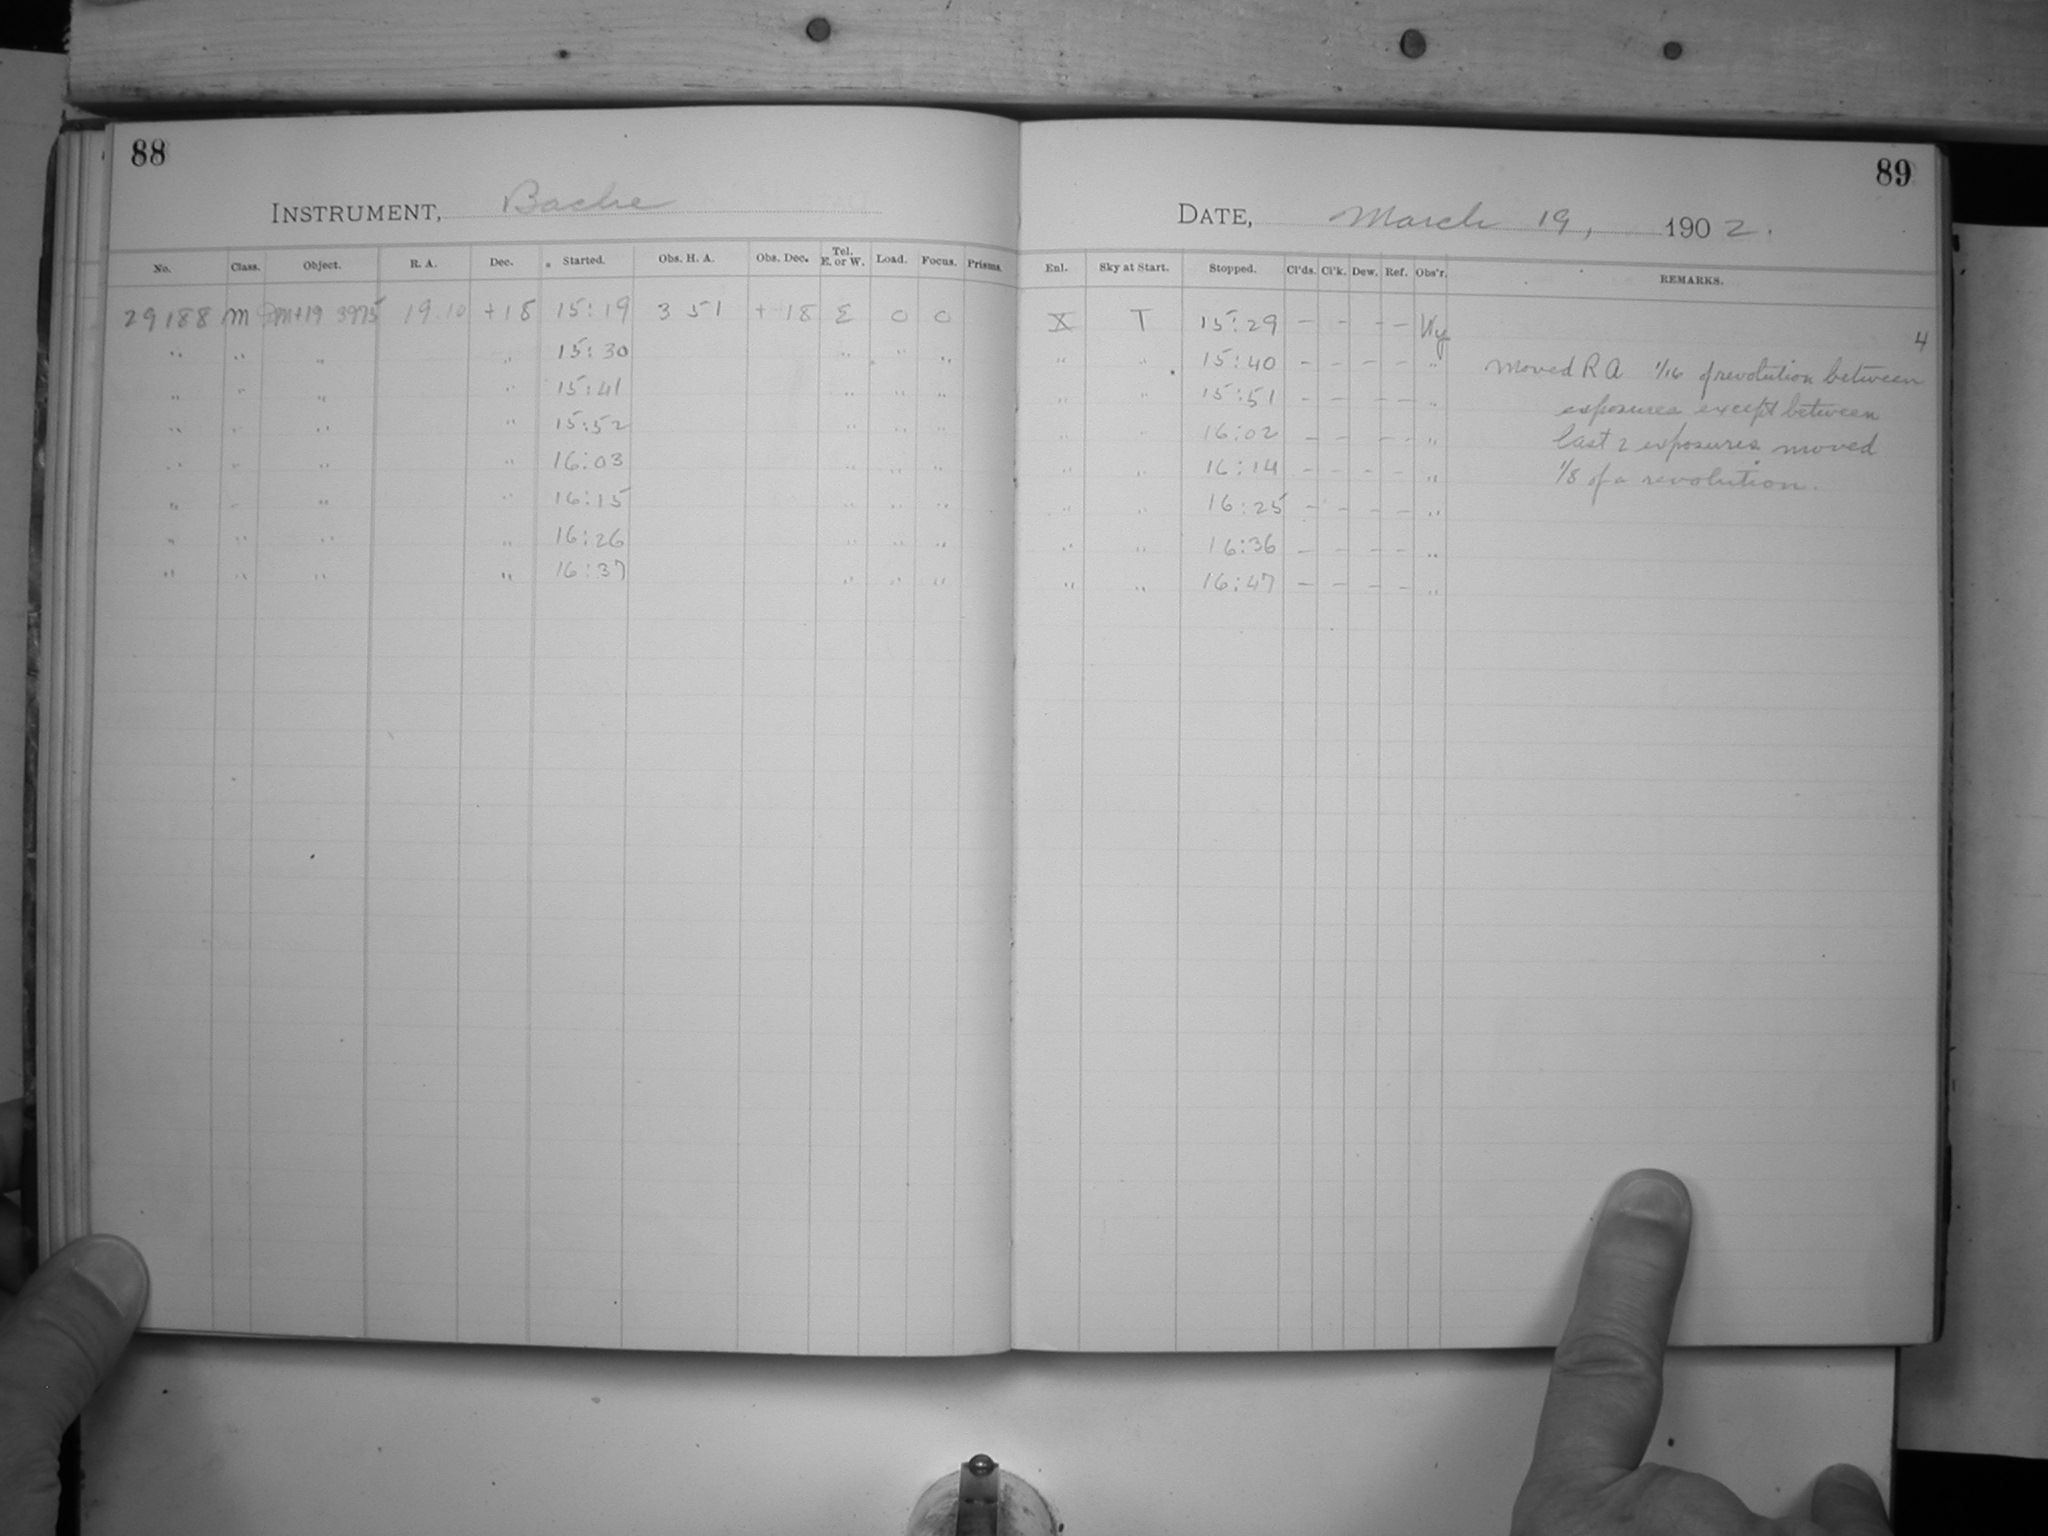 88
89
INSTRUMENT, Bache
DATE, March 19, 1902.
No. Class. Object. R. A. Dec. Started. Obs. H. A. Obs. Dec. Tel. E. or W. Load. Focus. Prisms. Enl. Sky at Start. Stopped. Cl'ds. Cl'k. Dew. Ref. Obs'r. REMARKS.
29188 m DM+19 3975 19.10 +18 15:19 3 51 +18 E 0 0 X T 15:29 – – – – Wy 4
" " " " 15:30 " " " " " 15:40 – – – – " Moved RA 1/16 of revolution between
" " " " 15:41 " " " " " 15:51 – – – – " exposures except between
" " " " 15:52 " " " " " 16:02 – – – – " last 2 exposures moved
" " " " 16:03 " " " " " 16:14 – – – – " 1/8 of a revolution.
" " " " 16:15 " " " " " 16:25 – – – – "
" " " " 16:26 " " " " " 16:36 – – – – "
" " " " 16:37 " " " " " 16:47 – – – – "